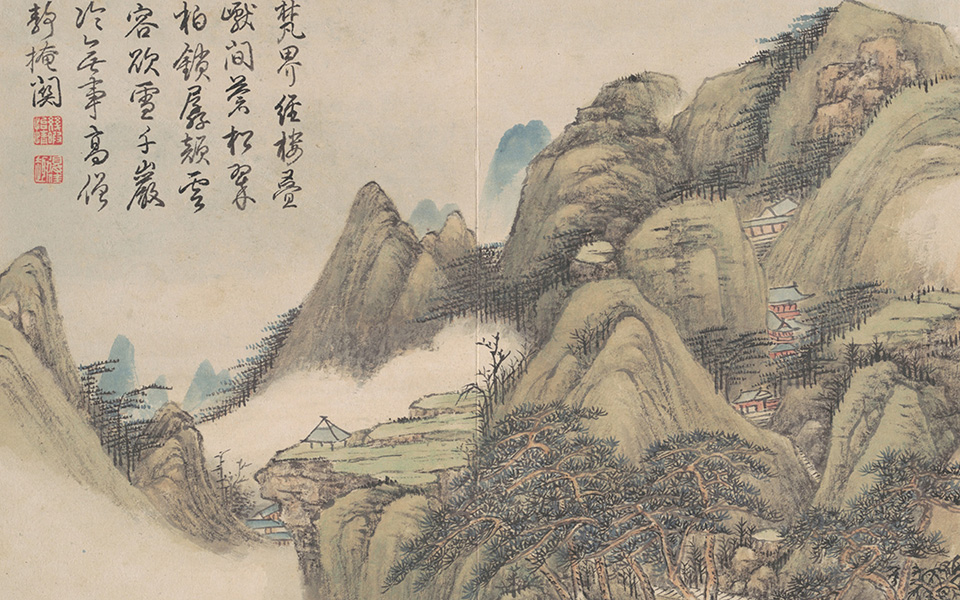 梵界經樓疊
巘間蒼松翠
柏鎖孱顏雲
容欲雪千巖
冷無事高僧
靜掩関